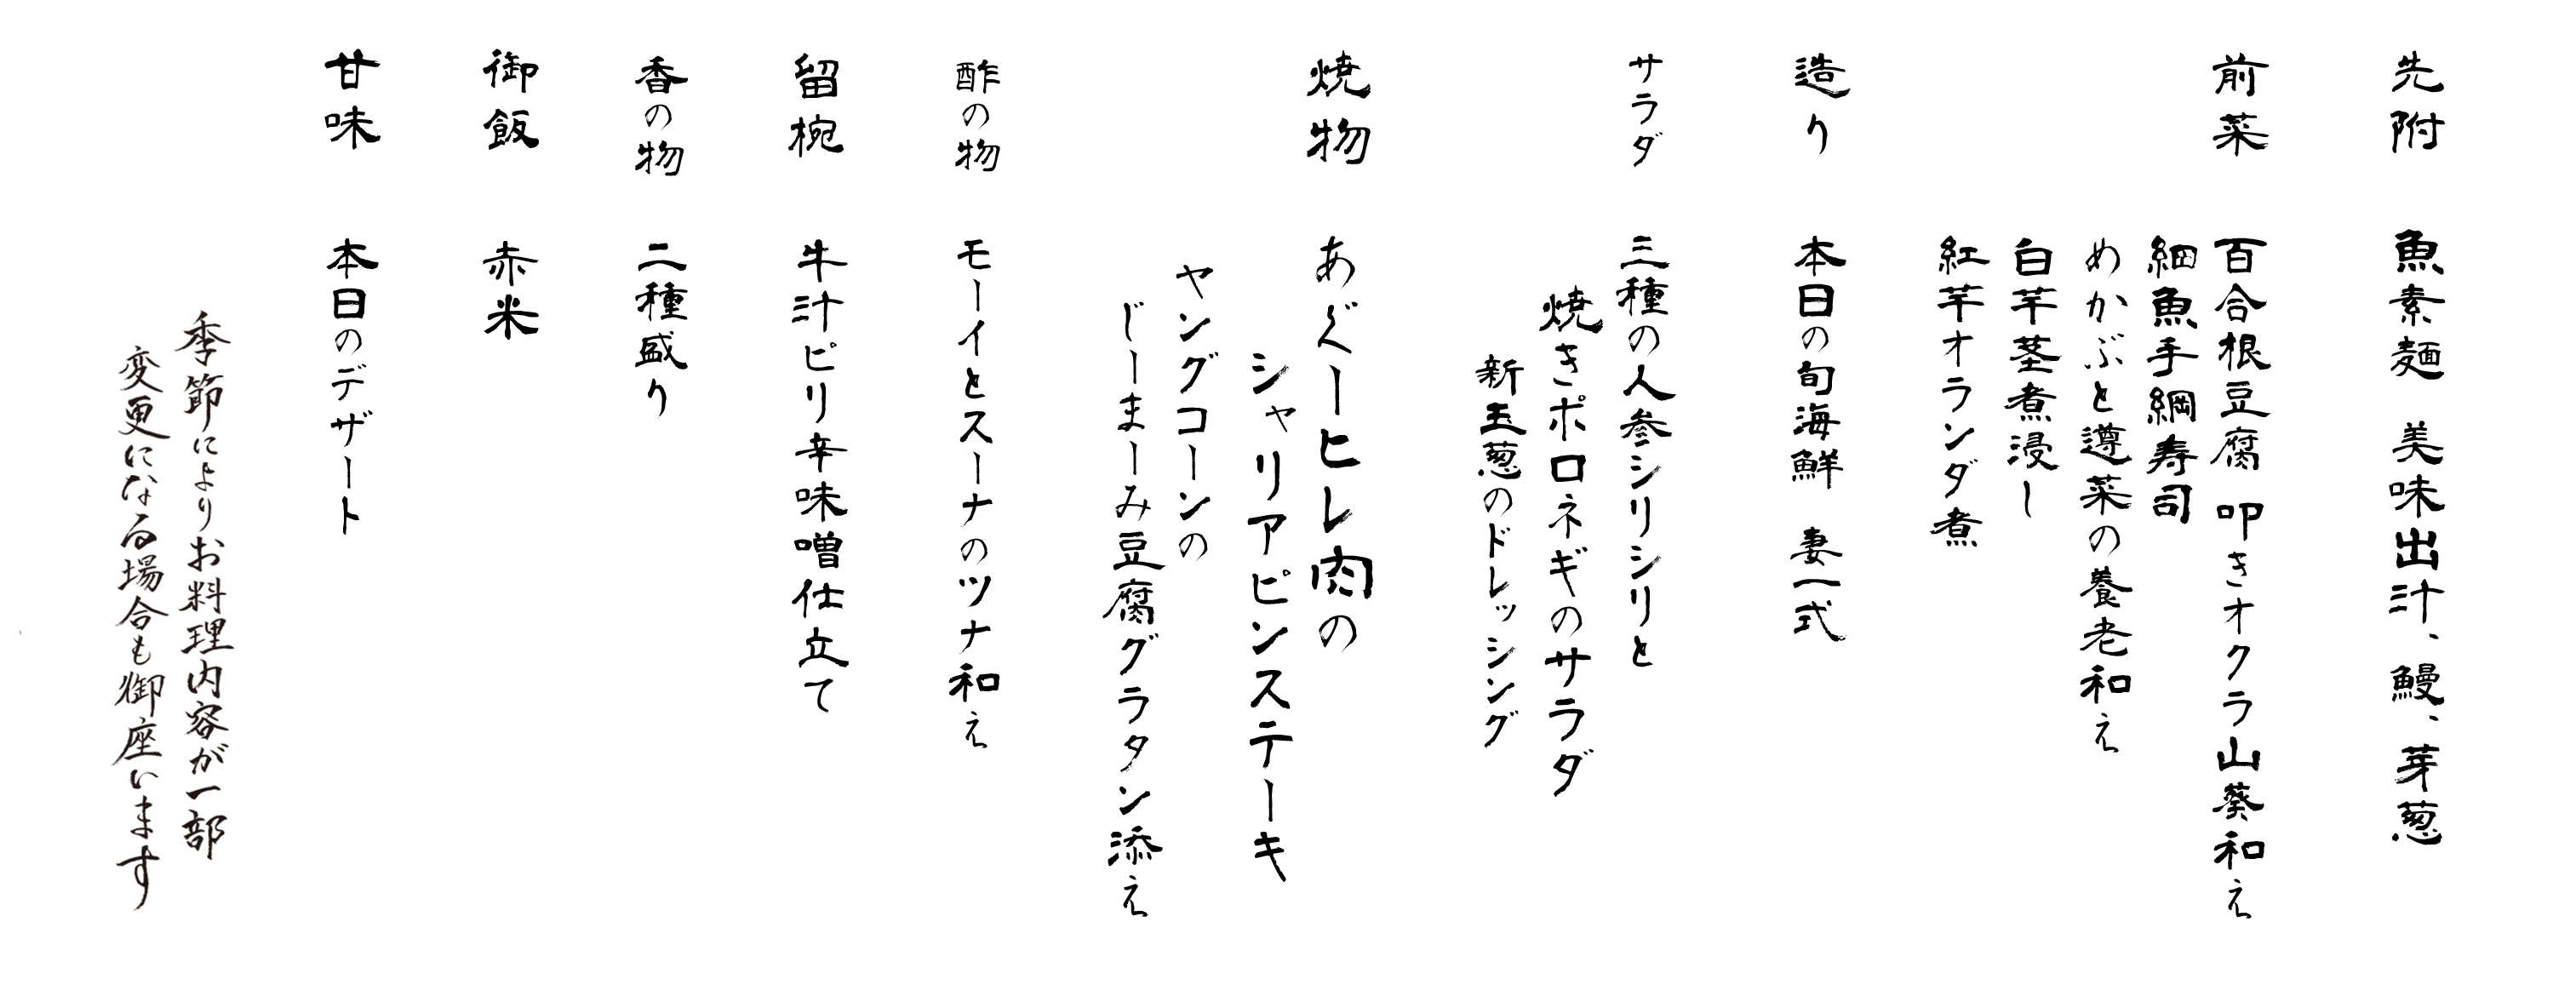 先附　魚素麺　美味出汁、鰻、芽葱
前菜　百合根豆腐　叩きオクラ山葵和え
細魚手綱寿司
めかぶと蓴菜の養老和え
白芋茎煮浸し
紅芋オランダ煮
造り　本日の旬海鮮　妻一式
サラダ　三種の人参シリシリと
焼きポロネギのサラダ
新玉葱のドレッシング
焼物　あぐーヒレ肉の
シャリアピンステーキ
ヤングコーンの
じーまーみ豆腐グラタン添え
酢の物　モーイとスーナのツナ和え
留椀　牛汁ピリ辛味噌仕立て
香の物　二種盛り
御飯　赤米
甘味　本日のデザート
季節によりお料理内容が一部
変更になる場合も御座います